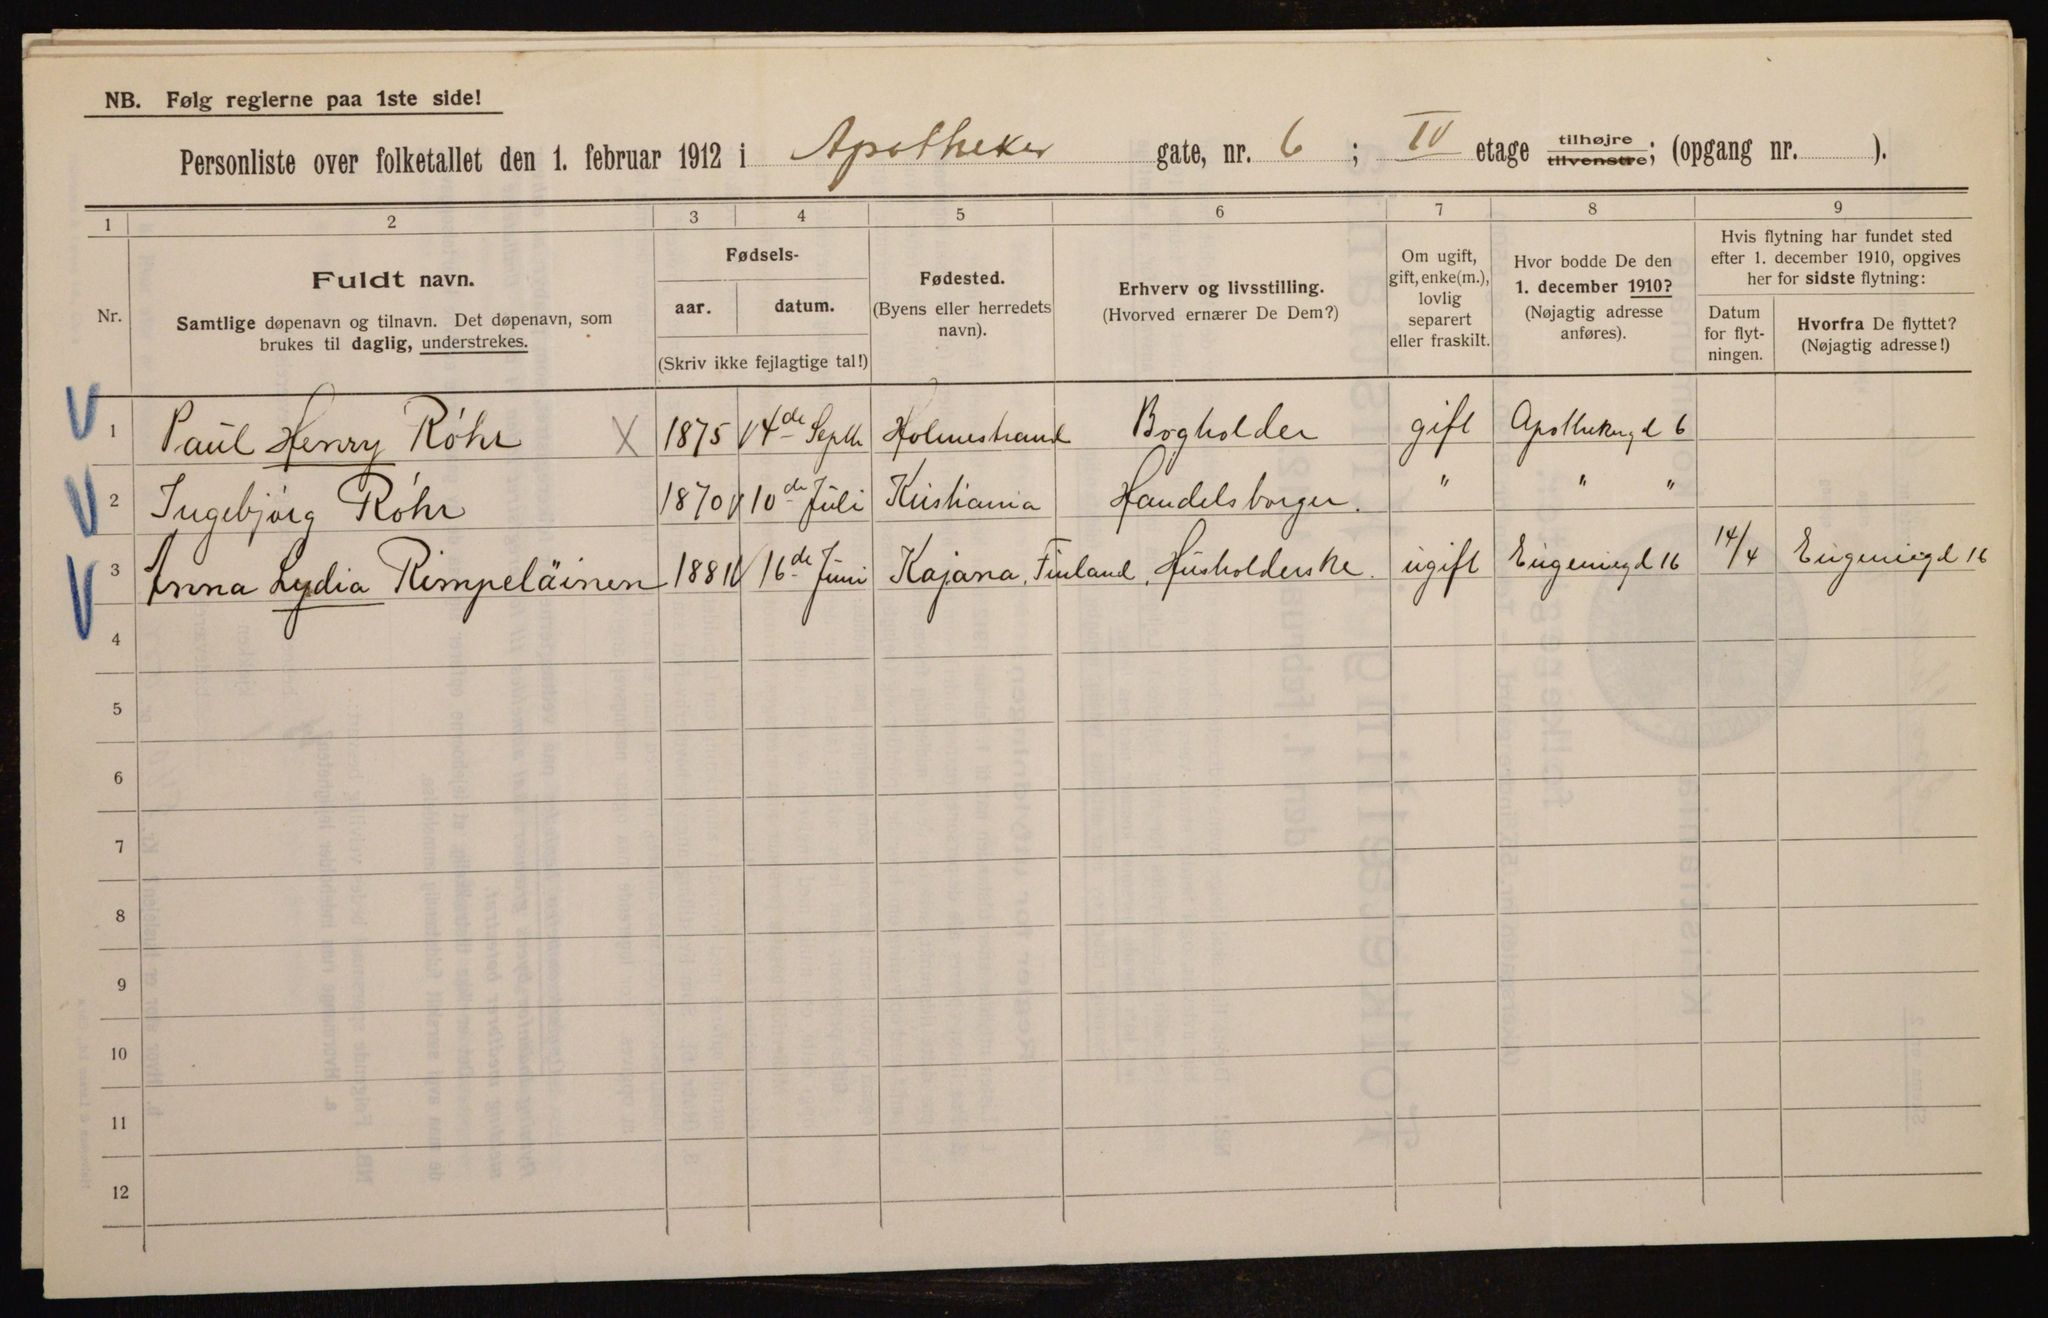 NB. Følg reglerne paa 1ste side!
Personliste over folketallet den 1. februar 1912 i Apotheker gate, nr. 6 ; IV etage tilhøjre tilvenstre; (opgang nr. ).
1 2 3 4 5 6 7 8 9
Nr.
Fuldt navn.
Samtlige døpenavn og tilnavn. Det døpenavn, som
brukes til daglig, understrekes.
Fødsels-
aar. datum.
(Skriv ikke fejlagtige tal!)
Fødested.
(Byens eller herredets
navn).
Erhverv og livsstilling.
(Hvorved ernærer De Dem?)
Om ugift,
gift, enke(m.),
lovlig
separert
eller fraskilt.
Hvor bodde De den
1. december 1910?
(Nøjagtig adresse
anføres).
Hvis flytning har fundet sted
efter 1. december 1910, opgives
her for sidste flytning:
Datum
for flyt-
ningen.
Hvorfra De flyttet?
(Nøjagtig adresse!)
1 Paul Henry Röhr X 1875 14de Septr Holmestrand Bogholder gift Apothekergd 6
2 Ingebjörg Röhr 1870 10de Juli Kristiania Handelsborger. " " "
3 Anna Lydia Rimpeläinen 1881 16de Juni Kajana, Finland, Husholderske. ugift Eugeniegd 16 14/4 Eugeniegd 16
4
5
6
7
8
9
10
11
12